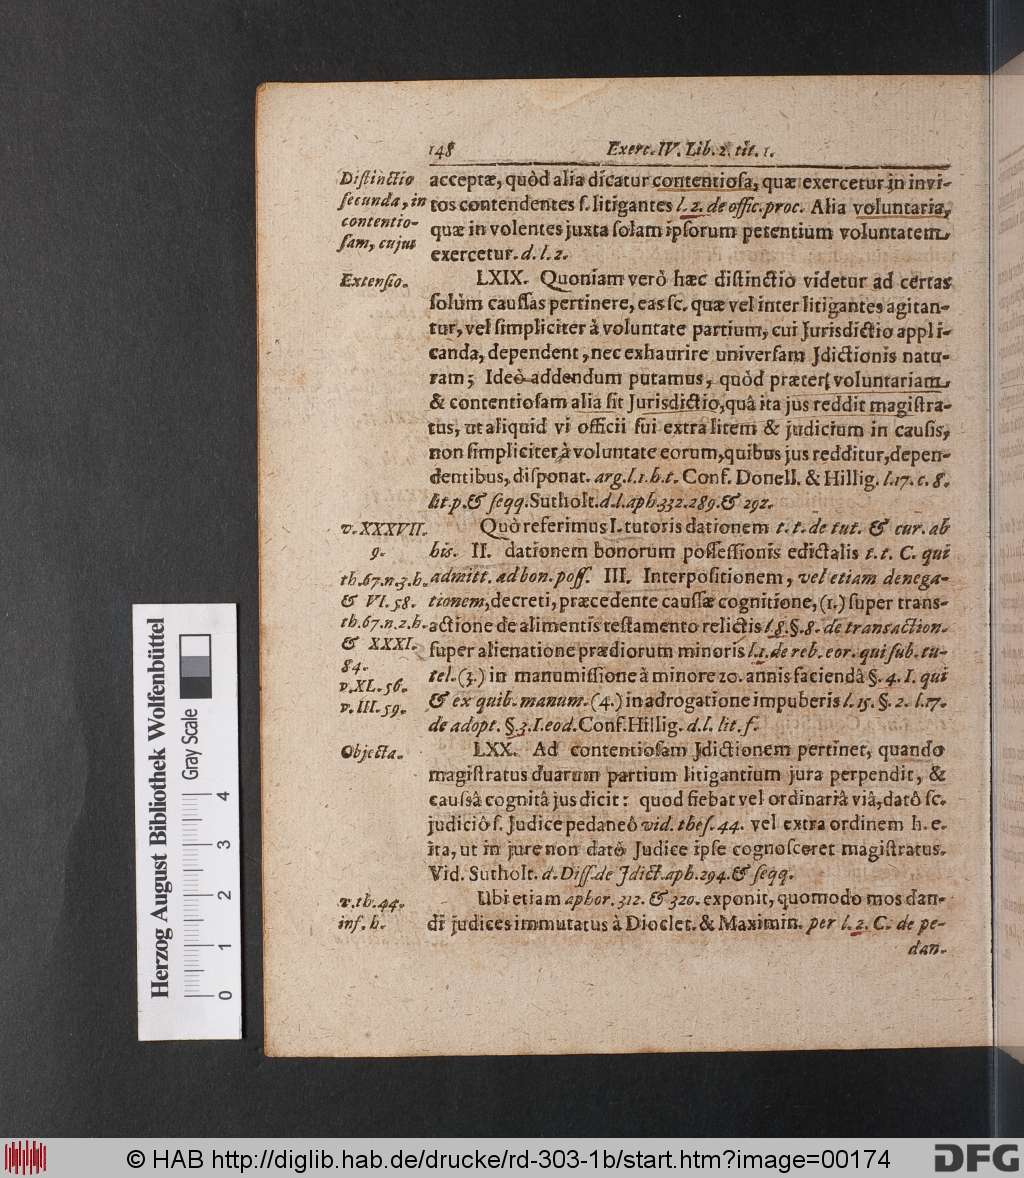 148 Exerc. IV. Lib. 2. tit. 1.
Distinctio
secunda, in
contentio-
sam, cujus
acceptæ, quòd alia dicatur contentiosa, quæ exercetur in invi-
tos contendentes s. litigantes l. 2. de offic. proc. Alia voluntaria,
quæ in volentes juxta solam ipsorum petentium voluntatem
exercetur. d. l. 2.
Extensio.
LXIX. Quoniam verò hæc distinctio videtur ad certas
solùm caussas pertinere, eas sc. quæ vel inter litigantes agitan-
tur, vel simpliciter à voluntate partium, cui Jurisdictio appli-
canda, dependent, nec exhaurire universam Jdictionis natu-
ram; Ideò addendum putamus, quòd præter voluntariam
& contentiosam alia sit Jurisdictio, quâ ita jus reddit magistra-
tus, ut aliquid vi officii sui extra litem & judicium in causis,
non simpliciter à voluntate eorum, quibus jus redditur, depen-
dentibus, disponat. arg. l. 1. h. t. Conf. Donell. & Hillig. l. 17. c. 8.
lit. p. & seqq. Sutholt. d. l. aph. 332. 289. & 292.
v. XXXVII.
9.
th. 67. n. 3. h.
& VI. 58.
th. 67. n. 2. h.
& XXXI.
84.
v. XL. 56.
v. III. 59.
Quò referimus I. tutoris dationem t. t. de tut. & cur. ab
his. II. dationem bonorum possessionis edictalis t. t. C. qui
admitt. ad bon. poss. III. Interpositionem, vel etiam denega-
tionem, decreti, præcedente caussæ cognitione, (1.) super trans-
actione de alimentis testamento relictis l. 8. §. 8. de transaction.
super alienatione prædiorum minoris l. 1. de reb. eor. qui sub. tu-
tel. (3.) in manumissione à minore 20. annis faciendâ §. 4. I. qui
& ex quib. manum. (4.) in adrogatione impuberis l. 15. §. 2. l. 17.
de adopt. §. 3. I. eod. Conf. Hillig. d. l. lit. f.
Objecta.
LXX. Ad contentiosam Jdictionem pertinet, quando
magistratus duarum partium litigantium jura perpendit, &
caussâ cognitâ jus dicit: quod fiebat vel ordinariâ viâ, datô sc.
judiciô s. Judice pedaneô vid. thes. 44. vel extra ordinem h. e.
ita, ut in jure non datô Judice ipse cognosceret magistratus.
Vid. Sutholt. d. Diss. de Jdict. aph. 294. & seqq.
v. th. 44.
inf. h.
Ubi etiam aphor. 312. & 320. exponit, quomodo mos dan-
di judices immutatus à Dioclet. & Maximin. per l. 2. C. de pe-
dan.
Herzog August Bibliothek Wolfenbüttel
Gray Scale
0 1 2 3 4
© HAB http://diglib.hab.de/drucke/rd-303-1b/start.htm?image=00174
DFG